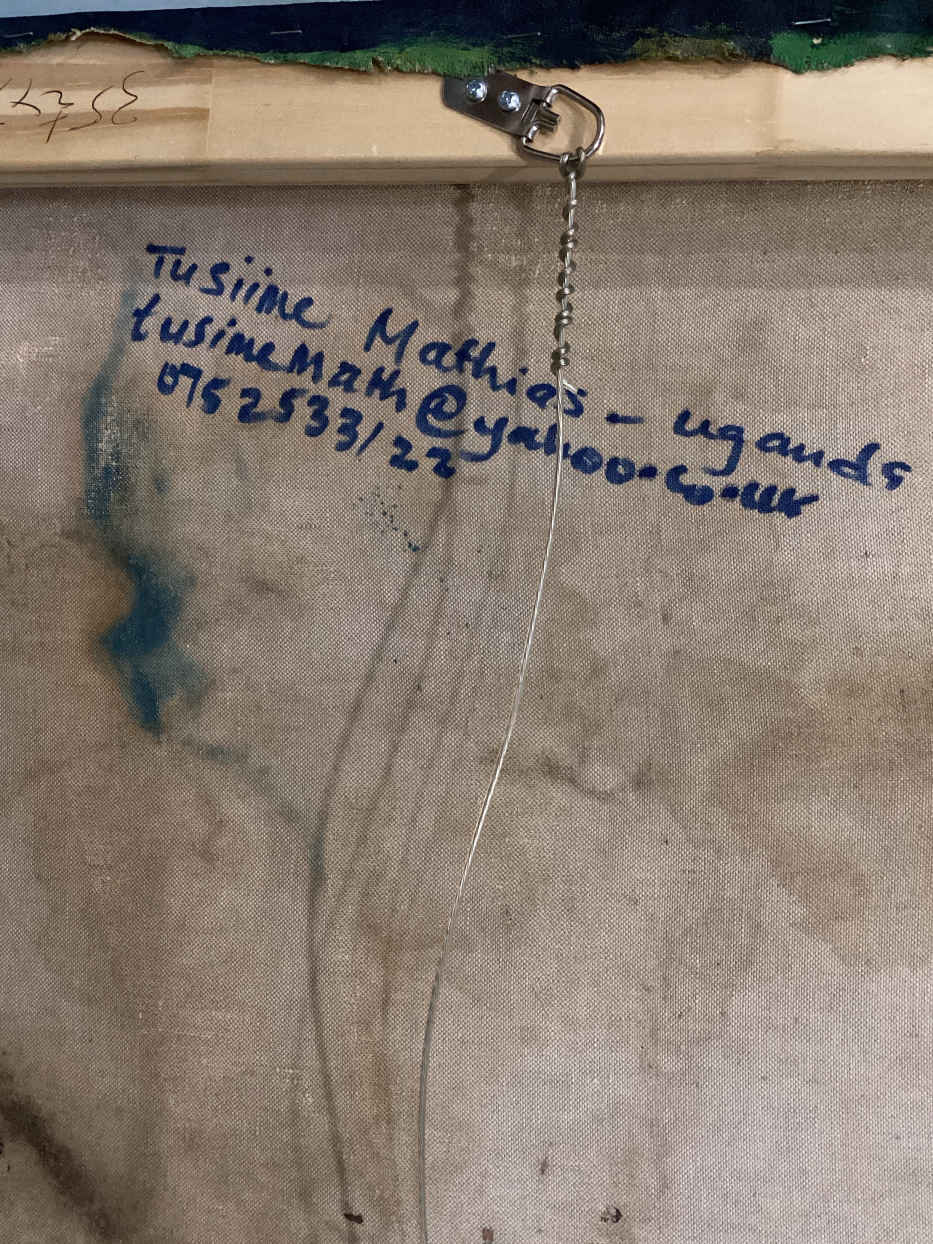 Tusiime Mathias - uganda
tusimemath@yahoo.co.uk
0752533122